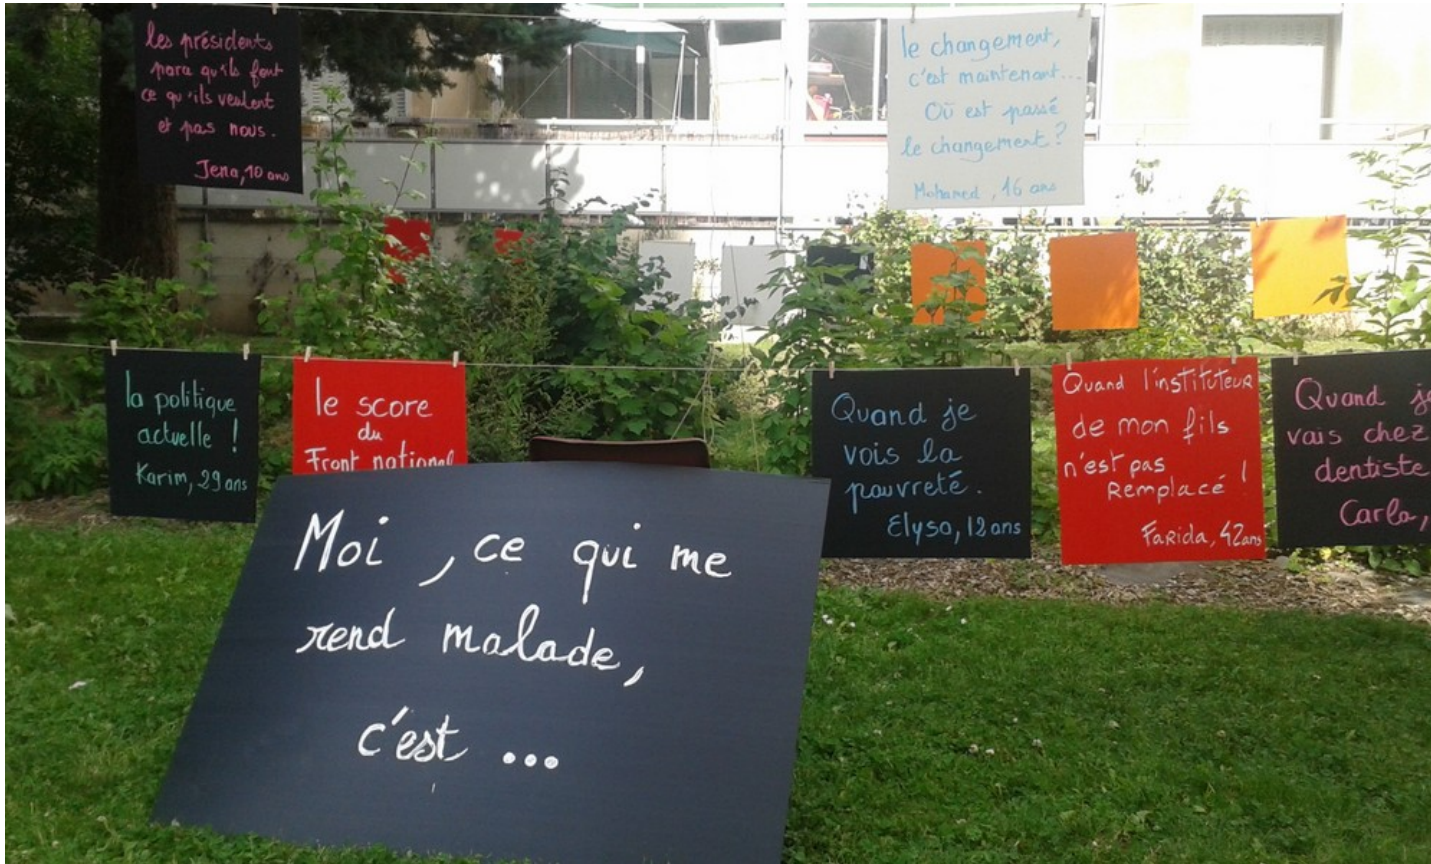 les présidents
parce qu'ils font
ce qu'ils veulent
et pas nous.
Jena, 10 ans
le changement,
c'est maintenant...
Où est passé
le changement ?
Mohamed, 16 ans
la politique
actuelle !
Karim, 29 ans
le score
du
Front national
Quand je
vois la
pauvreté.
Elysa, 12 ans
Quand l'instituteur
de mon fils
n'est pas
Remplacé !
Farida, 42 ans
Quand je
vais chez
dentiste
Carla,
Moi, ce qui me
rend malade,
c'est ...